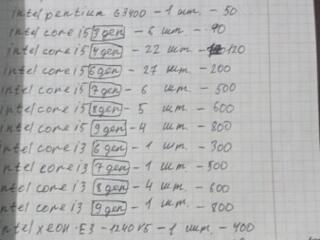 intel pentium G3400 - 1 шт. - 50
intel core i5 3 ген - 6 шт. - 90
intel core i5 4 ген - 22 шт. - 120
intel core i5 6 ген - 27 шт. - 200
intel core i5 7 ген - 6 шт. - 500
intel core i5 8 ген - 5 шт. - 600
intel core i5 9 ген - 4 шт. - 800
intel core i3 6 ген - 1 шт. - 300
intel core i3 7 ген - 1 шт. - 500
intel core i3 8 ген - 4 шт. - 600
intel core i3 9 ген - 1 шт. - 800
intel xeon - E3 - 1240 V5 - 1 шт. - 400